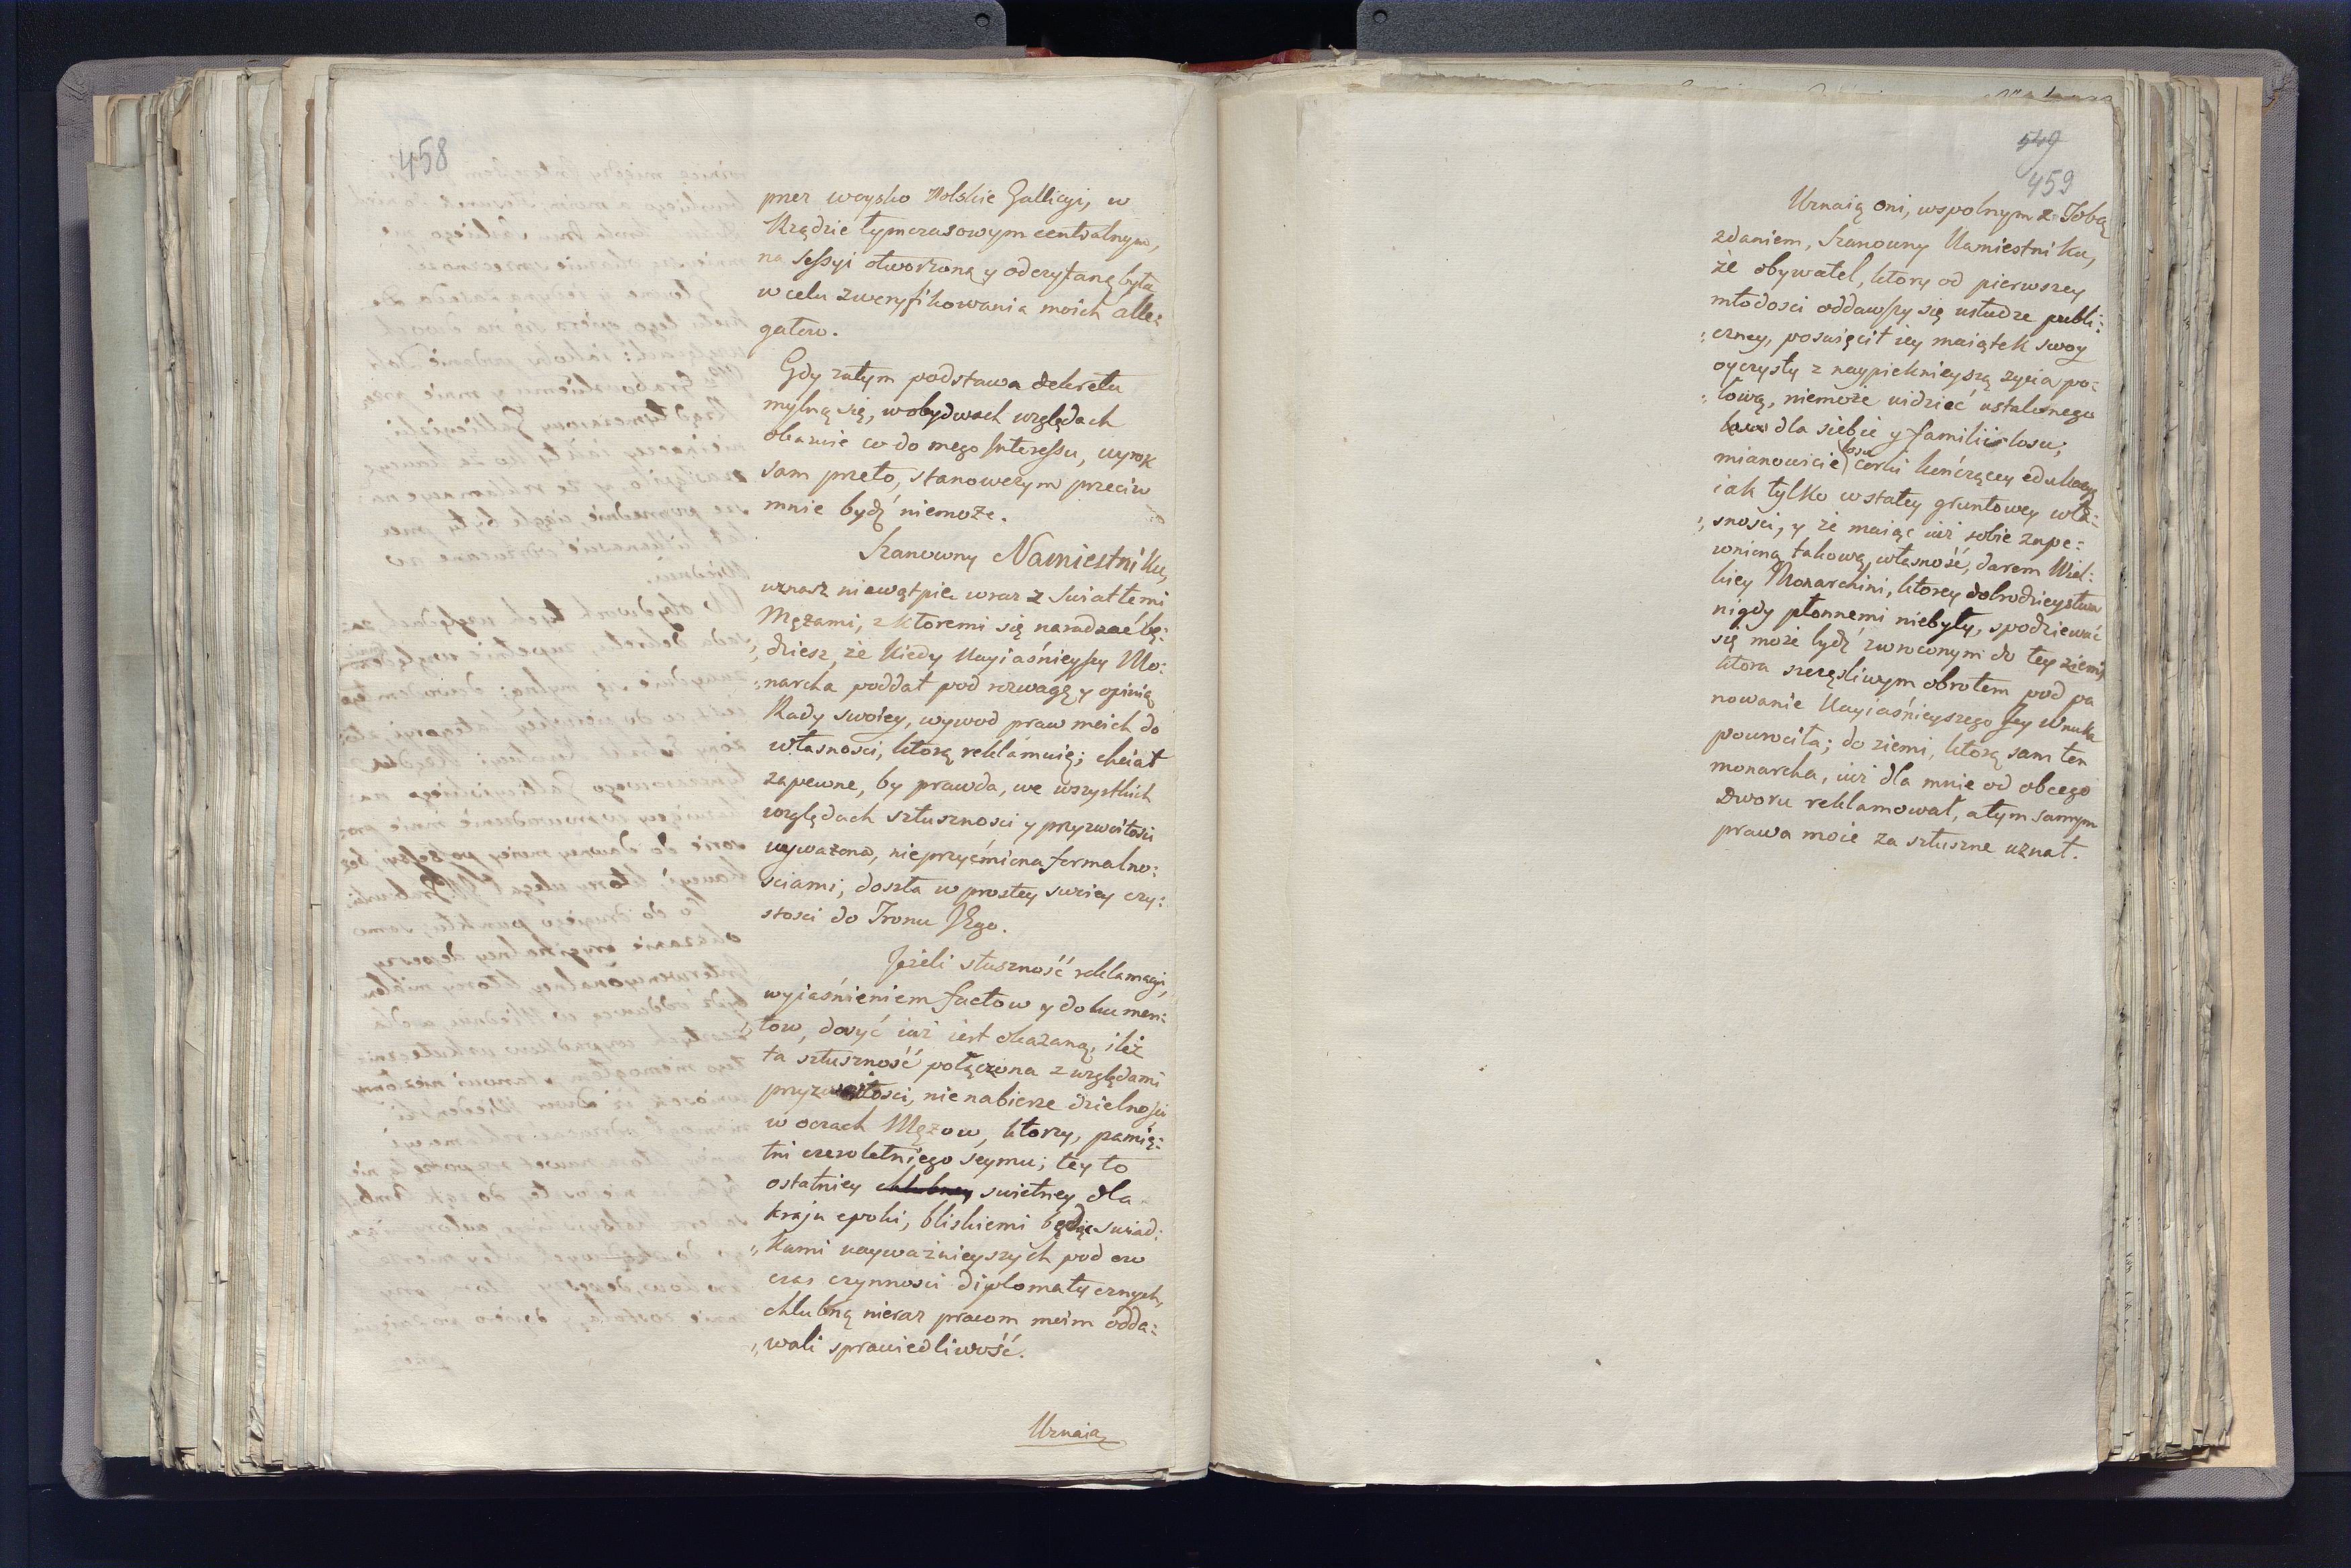 458
przez woysko Polskie Gallicyi, w
Rządzie tymczasowym centralnym,
na sessyi otworzoną y odczytaną była
w celu zweryfikowania moich alle:
gatow.
Gdy zatym podstawa dekretu
mylną się, w obydwoch względach
okazuie co do mego Interessu, wyrok
sam przeto, stanowczym przeciw
mnie bydź niemoże.
Szanowny Namiestniku,
uznasz niewątpie wraz z swiatłemi
Mężami, z ktoremi się naradzać bę:
„dziesz, że kiedy Nayiaśnieyszy Mo:
„narcha poddał pod rozwagę y opinią
Rady swoiey, wywod praw moich do
własnosci, ktorą reklamuię; chciał
zapewne, by prawda, we wszystkich
względach słuszności y przyzwoitości
uyważona, nieprzyćmiona formalno:
sciami, doszła w prostey swoiey czy:
stosci do Tronu JEgo.
Jeżeli słuszność reklamacyi,
wyiaśnieniem factow y dokumen:
„tow, dosyć iuż iest okazaną, ileż
ta słuszność połączona z względami
przyzwoitości, nie nabierze dzielności
w oczach Mężow, ktorzy, pamię:
tni czteroletniego Seymu; tey to
ostatniey chlubney swietney dla
kraju epoki, bliskiemi będąc swiad:
„kami nayważnieyszych pod ow
czas czynności diplomatycznych,
chlubną nieraz pracom moim odda:
„wali sprawiedliwość.
Uznaią
549
459
Uznaią oni, wspolnym z Tobą
zdaniem, Szanowny Namiestniku,
że obywatel, ktory od pierwszey
młodosci oddawszy się usłudze publi:
„czney, poswięcił iey maiątek swoy
oyczysty z naypięknieyszą życia po:
„łową, niemoże widzieć ustalonego
dla siebie y familii losu;
losu
mianowicie corki kończącey edukacyę
iak tylko w stałey gruntowey wła:
„sności, y że maiąc iuż sobie zape:
wnioną takową własność, darem Wiel:
kiey Monarchini, ktorey dobrodzieystwa
nigdy płonnemi niebyły, spodziewać
się może bydź zwroconym do tey ziemi,
ktora szczęśliwym obrotem pod pa
nowanie Nayiaśnieyszego Jey Wnuka
powrociła; do ziemi, ktorą sam ten
monarcha, iuż dla mnie od obcego
Dworu reklamował, a tym samym
prawa moie za słuszne uznał.